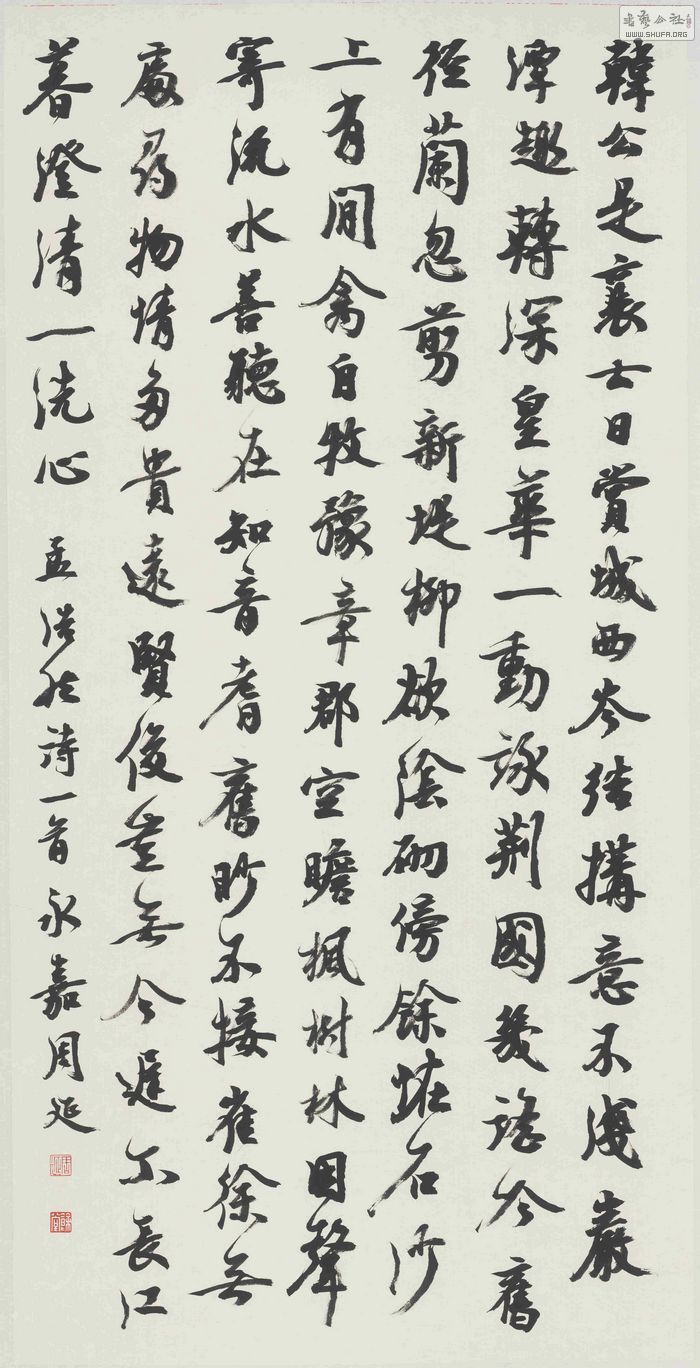 韓公是襄士日賞城西岑結構意不淺巖
潭趣轉深皇華一動詠荆國幾謠吟舊
徑蘭忽剪新堤柳欲陰砌傍餘怪石沙
上有閒禽自牧豫章郡空瞻楓樹林因聲
寄流水善聽在知音耆舊眇不接崔徐無
處尋物情多貴遠賢俊豈無今遲尔長江
暮澄清一洗心 孟浩然詩一首 永嘉周延
書藝公社
WWW.SHUFA.ORG